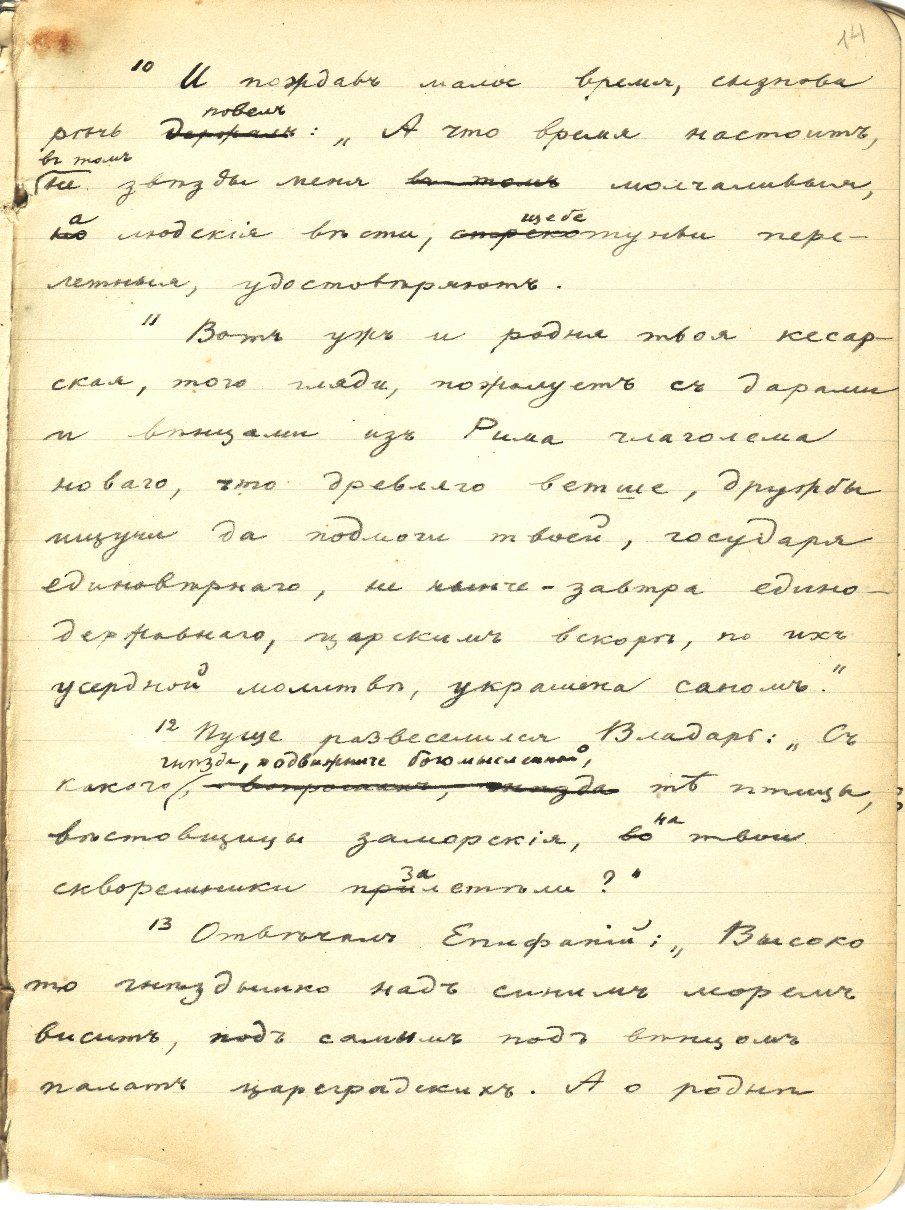 14
10 И пождавъ малое время, сызнова
повелъ
рѣчь держалъ: „А что время настоитъ,
въ томъ
не звѣзды меня въ томъ молчаливыя,
а щебе
но людскія вѣсти, стрекотуньи пере-
летныя, удостовѣряютъ.
11 Вотъ ужъ и родня твоя кесар-
ская, того гляди, пожалуетъ съ дарами
и вѣнцами изъ Рима глаголема
новаго, что древляго ветше, дружбы
ищучи да подмоги твоей, государя
единовѣрнаго, не нынче-завтра едино-
державнаго, царскимъ вскорѣ, по ихъ
усердной молитвѣ, украшена саномъ."
12 Пуще развеселился Владарь: „Съ
гнѣзда, подвижниче богомысленной,
какого, вопрошалъ, гнѣзда тѣ птицы,
на
вѣстовщицы заморскія, во твои
за
скворешники прилетѣли?"
13 Отвѣчалъ Епифаній: „Высоко
то гнѣздышко надъ синимъ моремъ
виситъ, подъ самымъ подъ вѣнцомъ
палатъ цареградскихъ. А о роднѣ